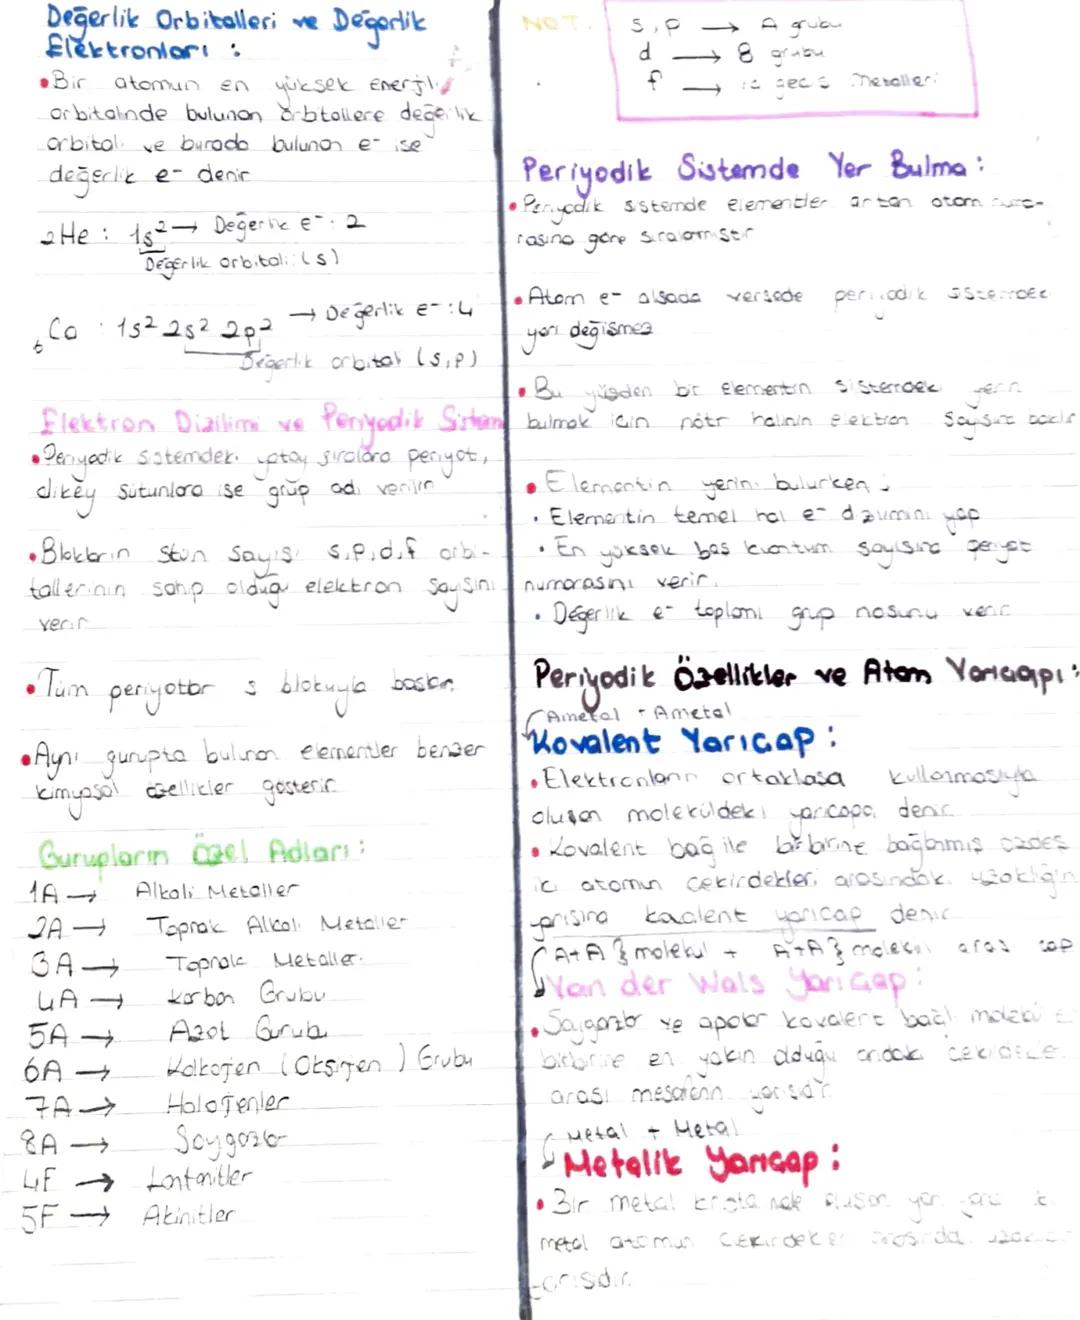 Değerlik Orbitalleri ve Değerlik
Elektronları :
• Bir atomun en yüksek enerjili
orbitalinde bulunan orbitallere değerlik
orbitali ve burada bulunan e- ise
değerlik e- denir
2He : 1s² → Değerlik e- : 2
Değerlik orbitali : (s)
6Ca : 1s² 2s² 2p² → Değerlik e- : 4
Değerlik orbitali (s,p)
Elektron Dizilimi ve Periyodik Sistem
• Periyodik sistemdeki yatay sıralara periyot,
dikey sütunlara ise grup adı verilir
• Blokların stun sayısı s,p,d,f orbi-
tallerinin sahip olduğu elektron sayısını
verir
• Tüm periyotlar s blokuyla başlar.
• Aynı gurupta bulunan elementler benzer
kimyasal özellikler gösterir.
Gurupların Özel Adları :
1A → Alkali Metaller
2A → Toprak Alkali Metaller
3A → Toprak Metaller
4A → Karbon Grubu
5A → Azot Gurubu
6A → Kalkojen (Oksijen) Grubu
7A → Halojenler
8A → Soygazlar
4F → Lantanitler
5F → Aktinitler
NOT :
s,p → A grubu
d → B grubu
f → iç geçiş metalleri
Periyodik Sistemde Yer Bulma :
• Periyodik sistemde elementler artan atom numa-
rasına göre sıralamıştır
• Atom e- alsada versede periyodik sistemdeki
yeri değişmez
• Bu yüzden bir elementin sistemdeki yerini
bulmak için nötr halinin elektron sayısına bakılır
• Elementin yerini bulurken ;
• Elementin temel hal e- dizilimini yap
• En yüksek baş kuantum sayısına periyot
numarasını verir.
• Değerlik e- toplamı grup nosunu verir
Periyodik Özellikler ve Atom Yarıçapı :
Ametal + Ametal
Kovalent Yarıçap :
• Elektronların ortaklaşa kullanmasıyla
oluşan moleküldeki yarıçapa denir.
• Kovalent bağ ile birbirine bağlanmış özdeş
iki atomun çekirdekleri arasındaki uzaklığın
yarısına kovalent yarıçap denir
A+A } molekül + A+A } molekül arası çap
Van der Wals Yarıçap :
• Soygazlar ve apolar kovalent bağlı molekül
birbirine en yakın olduğu andaki çekirdekler
arası mesafenin yarısıdır.
Metal + Metal
Metalik Yarıçap :
• Bir metal kristalinde oluşan yan yana iki
metal atomun çekirdekleri arasında uzaklığın
yarısıdır.